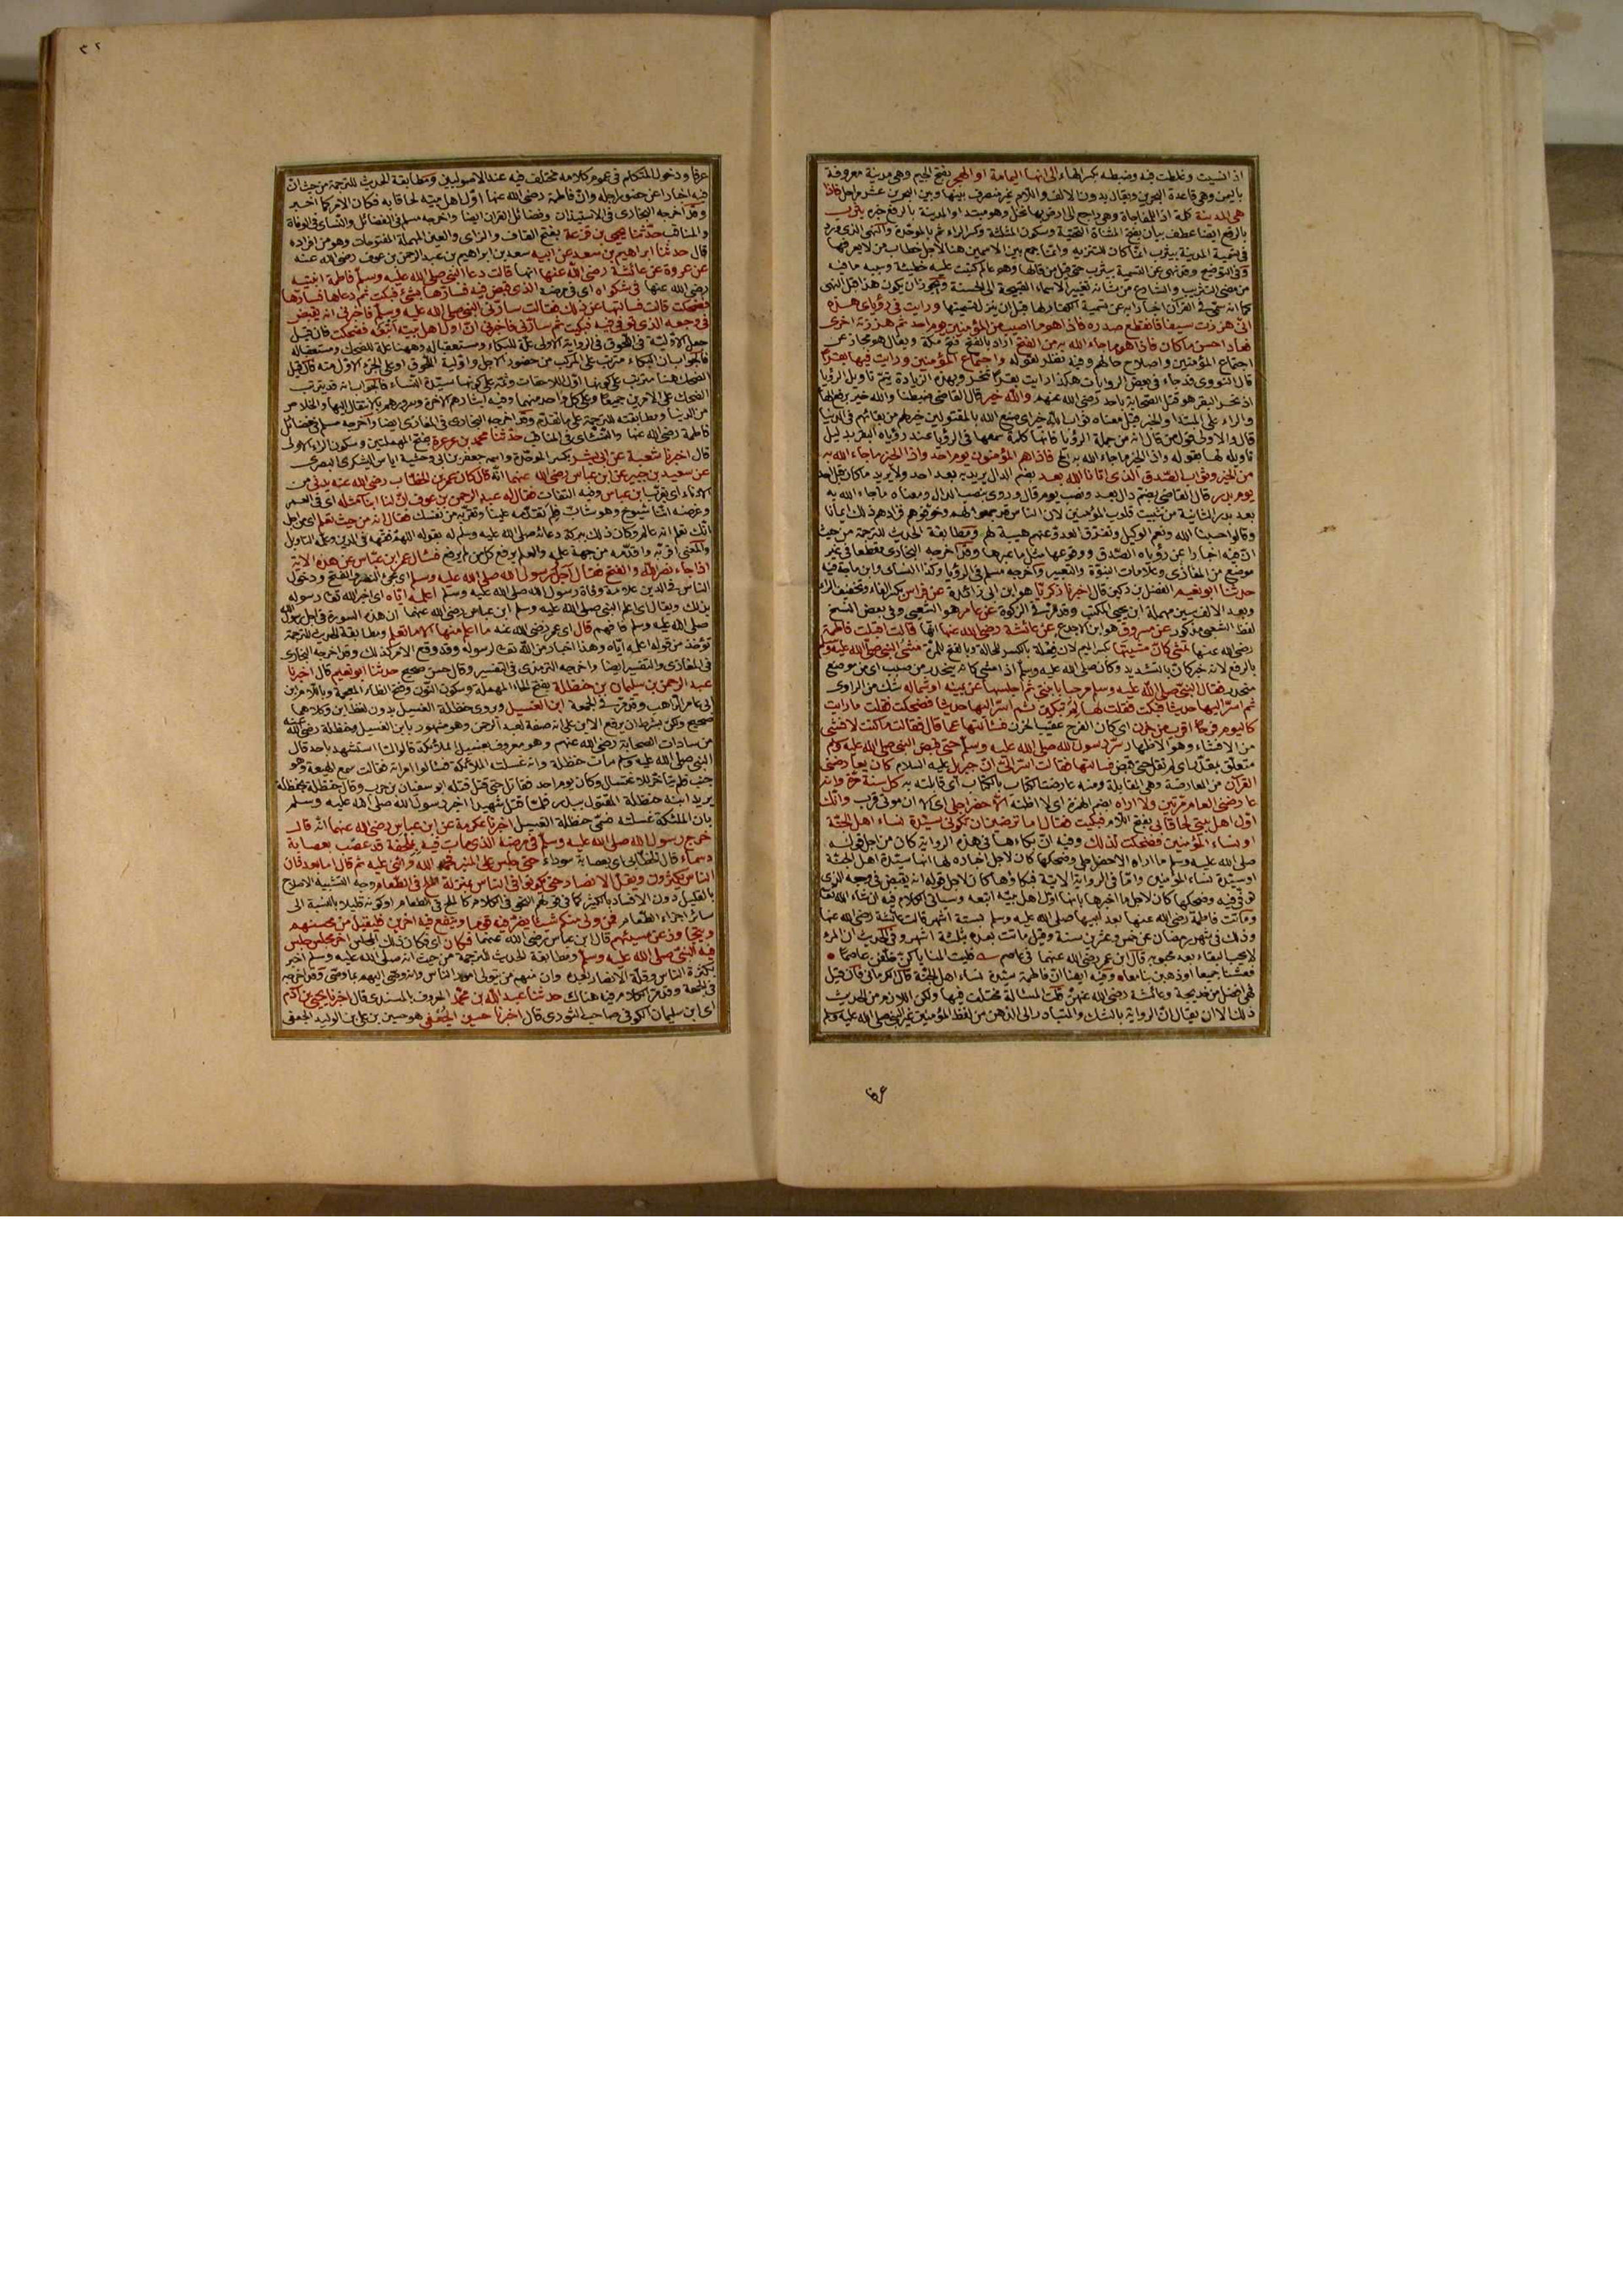 اذ انسيت وغلطت فيه وضبطه بكسر الهاء الى انها اليمامة او الهجر بفتح الجيم وهى مدينة معروفة
باليمن وهى قاعدة البحرين ويقال بدون الالف واللام غير منصرف بينها وبين البحرين عشر مراحل فاذا
هى المدينة كلمة اذا للمفاجاة وهى راجع الى ارض بها نخل وهو مبتدا والمدينة بالرفع خبره يثرب
بالرفع ايضا عطف بيان بفتح المثناة التحتية وسكون المثلثة وكسر الراء ثم بالموحدة والنهى الذى ورد
فى تسمية المدينة بيثرب انما كان للتنزيه وانما جمع بين الاسمين هنا لاجل خطاب من لا يعرفها
كما انه سمى فى القرآن اخبارا به عن تسمية الكفار لها قبل ان ينزل تسميتها ورايت فى رؤياى هذه
انى هززت سيفا فانقطع صدره فاذا هو ما اصيب من المؤمنين يوم احد ثم هززته اخرى
فعاد احسن ما كان فاذا هو ما جاء الله به من الفتح اراد بالفتح فتح مكة ويقال هو مجاز عن
اجتماع المؤمنين واصلاح حالهم وفيه نظر لقوله واجتماع المؤمنين ورايت فيها بقرا
قال النووى قد جاء فى بعض الروايات هكذا رايت بقرا تنحر وبهذه الزيادة يتم تاويل الرؤيا
اذ نحر البقر هو قتل الصحابة باحد رضى الله عنهم والله خير قال القاضى ضبطنا والله خير برفع الهاء
والراء على المبتدا والخبر قيل معناه ثواب الله خير اى صنع الله بالمقتولين خير لهم من بقائهم فى الدنيا
قال والاولى قول من قال انه من جملة الرؤيا فانها كلمة سمعها فى الرؤيا عند رؤياه البقر بدليل
تاويله لها بقوله واذا الخير ما جاء الله به الخ فاذا هم المؤمنون يوم احد واذا الخير ما جاء الله به
من الخير وثواب الصدق الذى اتانا الله بعد بضم الدال يريد به بعد احد ولا يريد ما كان قبل احد
يوم بدر قال القاضى بضم دال بعد ونصب يوم قال وروى بنصب الدال ومعناه ما جاء الله به
بعد بدر الثانية من تثبيت قلوب المؤمنين لان الناس قد جمعوا لهم وخوفوهم فزادهم ذلك ايمانا
وقالوا حسبنا الله ونعم الوكيل وتفرق العدو عنهم هيبة لهم ومطابقة الحديث للترجمة من حيث
ان فيه اخبارا عن رؤياه الصدق ووقوعها مثل ما عبرها وقد اخرجه البخارى مقطعا فى غير
موضع من المغازى وعلامات النبوة والتعبير واخرجه مسلم فى الرؤيا وكذا النسائى وابن ماجة فيه
حدثنا ابو نعيم الفضل بن دكين قال اخبرنا زكريا هو ابن ابى زائدة عن فراس بكسر الفاء وتخفيف الراء
وبعد الالف سين مهملة ابن يحيى المكتب وقد مر فى الزكوة عن عامر هو الشعبى وفى بعض النسخ
لفظ الشعبى مذكور عن مسروق هو ابن الاجدع عن عائشة رضى الله عنها انها قالت اقبلت فاطمة
رضى الله عنها تمشى كان مشيتها بكسر الميم لان فعلة بالكسر للحالة وبالفتح للمرة مشى النبى صلى الله عليه وسلم
بالرفع لانه خبر كان بالتشديد وكان صلى الله عليه وسلم اذا مشى كانه ينحدر من صبب اى من موضع
منحدر فقال النبى صلى الله عليه وسلم مرحبا بابنتى ثم اجلسها عن يمينه او شماله شك من الراوى
ثم اسر اليها حديثا فبكت فقلت لها لم تبكين ثم اسر اليها حديثا فضحكت فقلت ما رايت
كاليوم فرحا اقرب من حزن اى كان الفرح عقيب الحزن فسالتها عما قال فقالت ما كنت لافشى
من الافشاء وهو الاظهار سر رسول الله صلى الله عليه وسلم حتى قبض النبى صلى الله عليه وسلم
متعلق بمقدر اى لم تقل حتى قبض فسالتها فقالت اسر الى ان جبريل عليه السلام كان يعارضنى
القرآن من المعارضة وهى المقابلة ومنه عارضت الكتاب بالكتاب اى قابلته به كل سنة مرة وانه
عارضنى العام مرتين ولا اراه بضم الهمزة اى لا اظنه الا حضر اجلى اى الا ان موتى قرب وانك
اول اهل بيتى لحاقا بى بفتح اللام فبكيت فقال اما ترضين ان تكونى سيدة نساء اهل الجنة
او نساء المؤمنين فضحكت لذلك وفيه ان بكاءها فى هذه الرواية كان من اجل قوله
صلى الله عليه وسلم ما اراه الا حضر اجلى وضحكها كان لاجل اخباره لها انها سيدة اهل الجنة
او سيدة نساء المؤمنين واما فى الرواية الاتية فبكاؤها كان لاجل قوله انه يقبض فى وجعه الذى
توفى فيه وضحكها كان لاجل ما اخبرها بانها اول اهل بيته اتبعه وسياتى الكلام فيه ان شاء الله تعالى
وماتت فاطمة رضى الله عنها بعد ابيها صلى الله عليه وسلم بستة اشهر قالت عائشة رضى الله عنها
وذلك فى شهر رمضان عن خمس وعشرين سنة وقيل ماتت بعده بثلثة اشهر وفى الحديث ان المرء
لا يحب البقاء بعد محبوبه قال ابن عمر رضى الله عنهما فى عاصم فليت المنايا كن خلفن عاصما
فعشنا جميعا او ذهبن بنا معا وفيه ايضا ان فاطمة سيدة نساء اهل الجنة قال الكرمانى فان قيل
فهى افضل من خديجة وعائشة رضى الله عنهن قلت المسالة مختلف فيها ولكن اللازم من الحديث
ذلك الا ان يقال ان الرواية بالشك والمتبادر الى الذهن من لفظ المؤمنين غير النبى صلى الله عليه وسلم
عرفا
٣٢
عرفا ودخول المتكلم فى عموم كلامه مختلف فيه عند الاصوليين ومطابقة الحديث للترجمة من حيث ان
فيه اخبارا عن حضور اجله وان فاطمة رضى الله عنها اول اهل بيته لحاقا به فكان الامر كما اخبر
وقد اخرجه البخارى فى الاستيذان وفضائل القران ايضا واخرجه مسلم فى الفضائل والنسائى فى الوفاة
والمناقب حدثنا يحيى بن قزعة بفتح القاف والزاى والعين المهملة المفتوحات وهو من افراده
قال حدثنا ابراهيم بن سعد عن ابيه سعد بن ابراهيم بن عبد الرحمن بن عوف رضى الله عنه
عن عروة عن عائشة رضى الله عنها انها قالت دعا النبى صلى الله عليه وسلم فاطمة ابنته
رضى الله عنها فى شكواه اى فى مرضه الذى قبض فيه فسارها بشئ فبكت ثم دعاها فسارها
فضحكت قالت فسالتها عن ذلك فقالت سارنى النبى صلى الله عليه وسلم فاخبرنى انه يقبض
فى وجعه الذى توفى فيه فبكيت ثم سارنى فاخبرنى انى اول اهل بيته اتبعه فضحكت فان قيل
جعل الاولية فى اللحوق فى الرواية الاولى علة للبكاء ومستعقبا له وههنا علة للضحك ومستعقبا له
فالجواب ان البكاء مترتب على المركب من حضور الاجل واولية اللحوق او على الجزء الاول منه فان قيل
الضحك هنا مترتب على كونها اول اللاحقات وثمه على كونها سيدة النساء فالجواب انه قد يترتب
الضحك على الامرين جميعا وعلى كل واحد منهما وفيه ايثارهم الاخرة وسرورهم بالانتقال اليها والخلاص
من الدنيا ومطابقته للترجمة على ما تقدم وقد اخرجه البخارى فى المغازى ايضا واخرجه مسلم فى فضائل
فاطمة رضى الله عنها والنسائى فى المناقب حدثنا محمد بن عرعرة بفتح المهملتين وسكون الراء الاولى
قال اخبرنا شعبة عن ابى بشر بكسر الموحدة واسمه جعفر بن ابى وحشية اياس اليشكرى البصرى
عن سعيد بن جبير عن ابن عباس رضى الله عنهما انه قال كان عمر بن الخطاب رضى الله عنه يدنى من
الادناء اى يقرب ابن عباس وفيه التفات فقال له عبد الرحمن بن عوف ان لنا ابناء مثله اى فى العمر
وغرضه اننا شيوخ وهو شاب فلم تقدمه علينا وتقربه من نفسك فقال انه من حيث تعلم اى من اجل
انك تعلم انه عالم وكان ذلك ببركة دعائه صلى الله عليه وسلم له بقوله اللهم فقهه فى الدين وعلمه التاويل
والمعنى اقربه واقدمه من جهة علمه والعلم يرفع كل من لم يرفع فسال عمر ابن عباس عن هذه الاية
اذا جاء نصر الله والفتح فقال اجل رسول الله صلى الله عليه وسلم اى مجئ النصر والفتح ودخول
الناس فى الدين علامة وفاة رسول الله صلى الله عليه وسلم اعلمه اياه اى اخبر الله تعالى رسوله
بذلك ويقال اى اعلم النبى صلى الله عليه وسلم ابن عباس رضى الله عنهما ان هذه السورة فى اجل رسول الله
صلى الله عليه وسلم قال اى عمر رضى الله عنه ما اعلم منها الا ما تعلم ومطابقة الحديث للترجمة
تؤخذ من قوله اعلمه اياه وهذا اخبار من الله تعالى رسوله وقد وقع الامر كذلك وقد اخرجه البخارى
فى المغازى والتفسير ايضا واخرجه الترمذى فى التفسير وقال حسن صحيح حدثنا ابو نعيم قال اخبرنا
عبد الرحمن بن سليمان بن حنظلة بفتح الحاء المهملة وسكون النون وفتح الظاء المعجمة وباللام ابن
ابى عامر الراهب وقد مر فى الجمعة ابن الغسيل ويروى حنظلة الغسيل بدون لفظ ابن وكلاهما
صحيح ولكن بشرط ان يرفع الابن على انه صفة لعبد الرحمن وهو مشهور بابن الغسيل وحنظلة رضى الله عنه
من سادات الصحابة رضى الله عنهم وهو معروف بغسيل الملائكة قالوا لما استشهد باحد قال
النبى صلى الله عليه وسلم مات حنظلة وانه غسلته الملائكة فسالوا امراته فقالت سمع الهيعة وهو
جنب فلم يتاخر للاغتسال وكان يوم احد فقاتل حتى قتل قتله ابو سفيان بن حرب وقال حنظلة بحنظلة
يريد ابنه حنظلة المقتول ببدر فلما قتل شهيدا اخبر رسول الله صلى الله عليه وسلم
بان الملئكة غسلته فسمى حنظلة الغسيل اخبرنا عكرمة عن ابن عباس رضى الله عنهما انه قال
خرج رسول الله صلى الله عليه وسلم فى مرضه الذى مات فيه بملحفة قد عصب بعصابة
دسماء قال الخطابى اى بعصابة سوداء حتى جلس على المنبر فحمد الله واثنى عليه ثم قال اما بعد فان
الناس يكثرون ويقل الانصار حتى يكونوا فى الناس بمنزلة الملح فى الطعام وجه التشبيه الاصلاح
بالقليل دون الافساد بالكثير كما فى قولهم النحو فى الكلام كالملح فى الطعام او كونه قليلا بالنسبة الى
سائر اجزاء الطعام فمن ولى منكم شيئا يضر فيه قوما وينفع فيه اخرين فليقبل من محسنهم
ويتجاوز عن مسيئهم قال ابن عباس رضى الله عنهما فكان اى فكان ذلك المجلس اخر مجلس جلس
فيه النبى صلى الله عليه وسلم ومطابقة الحديث للترجمة من حيث انه صلى الله عليه وسلم اخبر
بكثرة الناس وقلة الانصار بعده وان منهم من يتولى امور الناس وقد اخرجه
فى الجمعة وقد مر الكلام فيه هناك حدثنا عبد الله بن محمد المعروف بالمسندى قال اخبرنا يحيى بن آدم
اى ابن سليمان الكوفى صاحب الثورى قال اخبرنا حسين الجعفى هو حسين بن على بن الوليد الجعفى